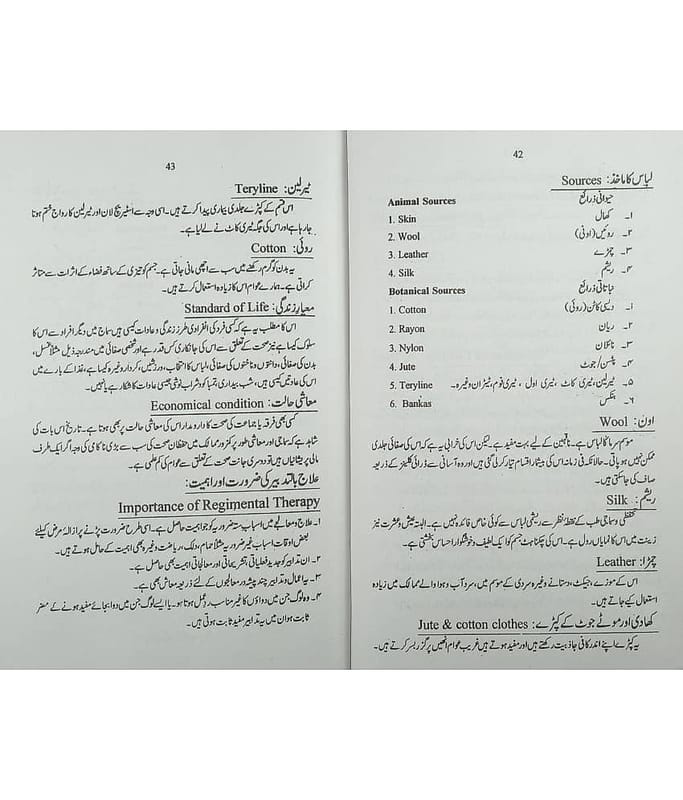 42
لباس کا ماخذ: Sources
Animal Sources حیوانی ذرائع
1. Skin ۱۔ کھال
2. Wool ۲۔ روئیں (اونی)
3. Leather ۳۔ چمڑے
4. Silk ۴۔ ریشم
Botanical Sources نباتاتی ذرائع
1. Cotton ۱۔ دیسی کاٹن (روئی)
2. Rayon ۲۔ ریان
3. Nylon ۳۔ نائلان
4. Jute ۴۔ پٹسن/جوٹ
5. Teryline ۵۔ ٹیرلین، ٹیری کاٹ، ٹیری اول، ٹیری فوم، ٹیٹران وغیرہ۔
6. Bankas ۶۔ بنکس
اون: Wool
موسم سرما کا لباس ہے۔ ناقہین کے لیے بہت مفید ہے۔ لیکن اس کی خرابی یہ ہے کہ اس کی صفائی جلدی
ممکن نہیں ہو پاتی۔ حالانکہ فی زمانہ اس کی بیشتر اقسام تیار کر لی گئی ہیں اور وہ آسانی سے ڈرائی کلینرز کے ذریعہ
صاف کی جا سکتی ہیں۔
ریشم: Silk
تحفظی و سماجی طب کے نقطۂ نظر سے ریشمی لباس سے کوئی خاص فائدہ نہیں ہے۔ البتہ عیش و عشرت نیز
زینت میں اس کا نمایاں رول ہے۔ اس کی چکناہٹ جسم کو ایک لطیف و خوشگوار احساس بخشتی ہے۔
چمڑا: Leather
اس کے موزے، جیکٹ، دستانے وغیرہ سردی کے موسم میں، سرد آب و ہوا والے ممالک میں زیادہ
استعمال کیے جاتے ہیں۔
کھادی اور موٹے جوٹ کے کپڑے: Jute & cotton clothes
یہ کپڑے اپنے اندر کافی جاذبیت رکھتے ہیں اور مفید ہوتے ہیں غریب عوام انھیں پر گزر بسر کرتے ہیں۔
43
ٹیرلین: Teryline
اس قسم کے کپڑے جلدی بیماری پیدا کرتے ہیں۔ اسی وجہ سے اسٹریچ لان اور ٹیرلین کا رواج ختم ہوتا
جا رہا ہے اور اس کی جگہ ٹیری کاٹ نے لے لیا ہے۔
روئی: Cotton
یہ بدن کو گرم رکھنے میں سب سے اچھی مانی جاتی ہے۔ جسم کو تیزی کے ساتھ فضاء کے اثرات سے متاثر
کراتی ہے۔ ہمارے عوام اس کا زیادہ استعمال کرتے ہیں۔
معیار زندگی: Standard of Life
اس کا مطلب یہ ہے کہ کسی فرد کی انفرادی طرز زندگی و عادات کیسی ہیں سماج میں دیگر افراد سے اس کا
سلوک کیسا ہے نیز صحت کے تعلق سے اس کی جانکاری کس قدر ہے اور شخصی صفائی میں مندرجہ ذیل مثلاً غسل،
بدن کی صفائی، دانتوں و ناخنوں کی صفائی، لباس کا انتخاب، ورزشیں، کردار وغیرہ کیسا ہے، غذا کے بارے میں
اس کی عادتیں کیسی ہیں، شب بیداری، تمباکو و شراب نوشی جیسی عادات کا شکار ہے یا نہیں۔
معاشی حالت: Economical condition
کسی بھی فرقہ یا جماعت کی صحت کا دارومدار اس کی معاشی حالت پر بھی ہوتا ہے۔ تاریخ اس بات کی
شاہد ہے کہ سماجی اور معاشی طور پر کمزور ممالک میں حفظان صحت کی سب سے بڑی ناکامی کی وجہ اگر ایک طرف
مالی پریشانیاں ہیں تو دوسری جانب صحت کے تعلق سے عوام کی کم علمی ہے۔
علاج بالتدبیر کی ضرورت اور اہمیت:
Importance of Regimental Therapy
۱۔ علاج و معالجے میں اسباب ستہ ضروریہ کو جو اہمیت حاصل ہے۔ اسی طرح ضرورت پڑنے پر ازالہ مرض کیلئے
بعض اوقات اسباب غیر ضروریہ مثلاً حمام، دلک، ریاضت وغیرہ بھی اہمیت کے حامل ہوتے ہیں۔
۲۔ ان تدابیر کو جدید فعلیاتی، تشریحیاتی اور معالجاتی اہمیت بھی حاصل ہے۔
۳۔ یہ اعمال و تدابیر چند پیشہ ور معالجوں کے لئے ذریعہ معاش بھی ہے۔
۴۔ وہ لوگ جن میں دواؤں کا غیر مناسب رد عمل ہوتا ہو۔ یا ایسے لوگ جن میں دوا بجائے مفید ہونے کے مضر
ثابت ہو ان میں یہ تدابیر مفید ثابت ہوتی ہیں۔